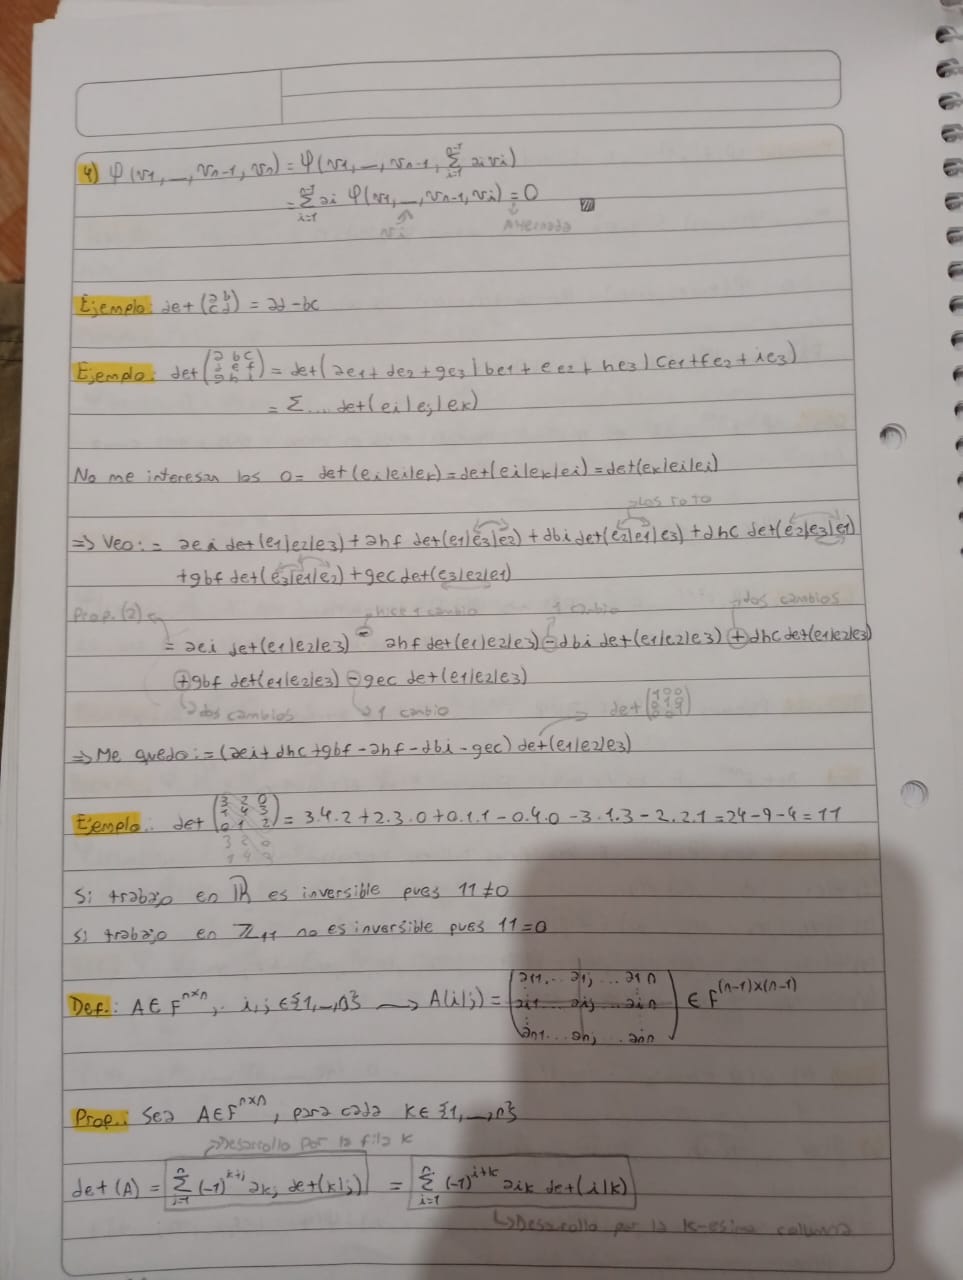 4) φ(v1, _, vn-1, vn) = φ(v1, _, vn-1, Σ_{i=1}^{n-1} ai vi)
= Σ_{i=1}^{n-1} ai φ(v1, _, vn-1, vi) = 0
vi Alternada
Ejemplo: det (a b c d) = ad - bc
Ejemplo: det (a b c d e f g h i) = det( ae1 + de2 + ge3 | be1 + ee2 + he3 | ce1 + fe2 + ie3)
= Σ ... det(ei|ej|ek)
No me interesan los 0 = det(ei|ei|ek) = det(ei|ek|ei) = det(ek|ei|ei)
→ Los roto
⇒ Veo: = aei det(e1|e2|e3) + ahf det(e1|e3|e2) + dbi det(e2|e1|e3) + dhc det(e2|e3|e1)
+ gbf det(e3|e1|e2) + gec det(e3|e2|e1)
Prop. (2) hice 1 cambio 1 cambio → dos cambios
= aei det(e1|e2|e3) - ahf det(e1|e2|e3) - dbi det(e1|e2|e3) + dhc det(e1|e2|e3)
+ gbf det(e1|e2|e3) - gec det(e1|e2|e3)
dos cambios 1 cambio → det (1 0 0 0 1 0 0 0 1)
⇒ Me quedo: = (aei + dhc + gbf - ahf - dbi - gec) det(e1|e2|e3)
Ejemplo: det (3 2 0 1 4 3 0 1 2) = 3.4.2 + 2.3.0 + 0.1.1 - 0.4.0 - 3.1.3 - 2.2.1 = 24 - 9 - 4 = 11
3 2 0
1 4 3
Si trabajo en ℝ es inversible pues 11 ≠ 0
Si trabajo en ℤ11 no es inversible pues 11 = 0
Def.: A ∈ F^{n×n}, i,j ∈ {1, _, n} → A(i|j) = (a11 ... a1j ... a1n
ai1 ... aij ... ain
an1 ... anj ... ann) ∈ F^{(n-1)×(n-1)}
Prop.: Sea A ∈ F^{n×n}, para cada k ∈ {1, _, n}
→ Desarrollo por la fila k
det(A) = Σ_{j=1}^{n} (-1)^{k+j} akj det(k|j) = Σ_{i=1}^{n} (-1)^{i+k} aik det(i|k)
↳ Desarrollo por la k-esima columna